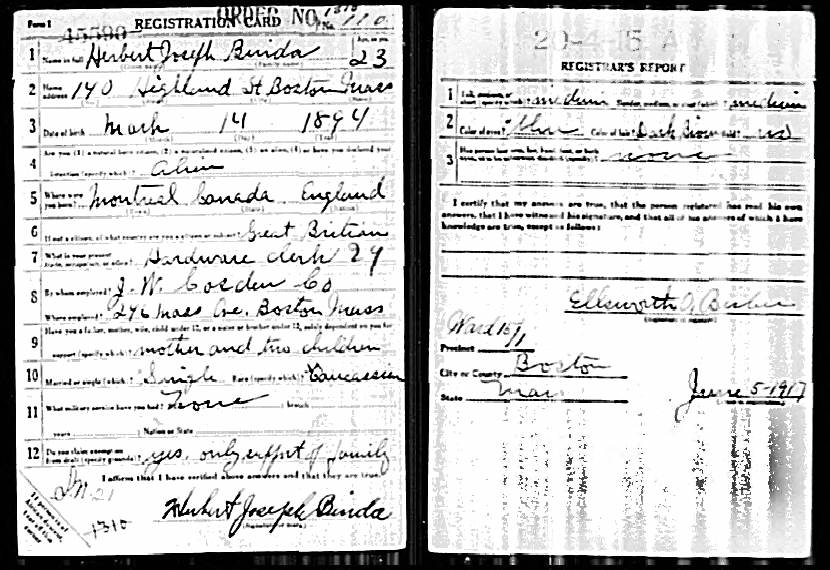 Form 1 REGISTRATION CARD ORDER NO. No. 110
45590
1 Name in full Herbert Joseph Binda Age, in yrs. 23
2 Home address 140 Highland St Boston Mass
3 Date of birth March 14 1894
4 Are you (1) a natural-born citizen, (2) a naturalized citizen, (3) an alien, (4) or have you declared your
intention (specify which)? Alien
5 Where were you born? Montreal Canada England
6 If not a citizen, of what country are you a citizen or subject? Great Britian
7 What is your present trade, occupation, or office? Hardware clerk 24
8 By whom employed? J. W. Cosden Co
Where employed? 276 Mass Ave. Boston Mass
9 Have you a father, mother, wife, child under 12, or a sister or brother under 12, solely dependent on you for
support (specify which)? mother and two children
10 Married or single (which)? Single Race (specify which)? Caucassion
11 What military service have you had? None branch
years Nation or State
12 Do you claim exemption from draft (specify grounds)? yes. only support of family
I affirm that I have verified above answers and that they are true.
21
1310
Herbert Joseph Binda
REGISTRAR'S REPORT
1 Tall, medium, or short (specify which)? medium Slender, medium, or stout (which)? medium
2 Color of eyes? Blue Color of hair? Dark Brown Bald? no
3 none
I certify that my answers are true, that the person registered has read his own
answers, that I have witnessed his signature, and that all of his answers of which I have
knowledge are true, except as follows:
Ellsworth
Ward 16/1
Precinct
City or County Boston
State Mass
June 5-1917